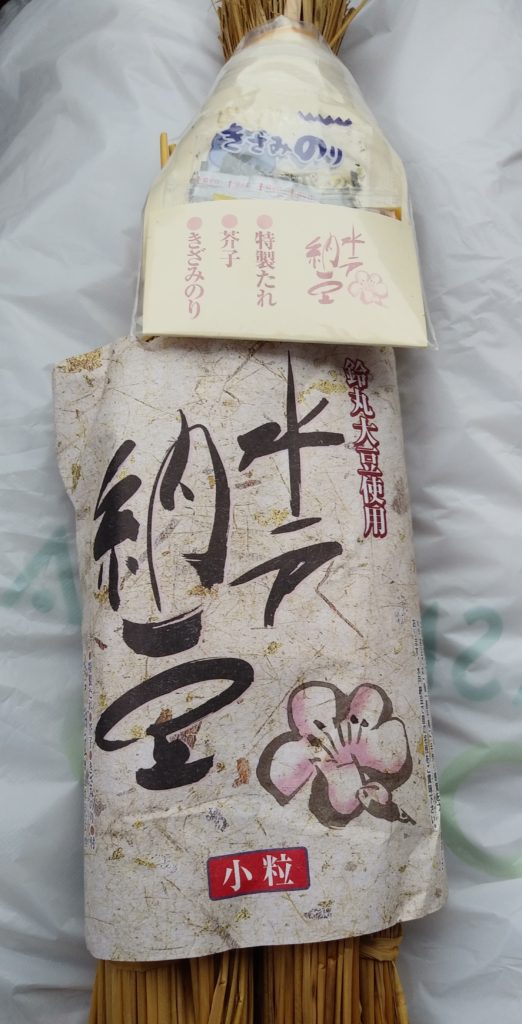 きざみのり
水戸
納豆
●特製たれ
●芥子
●きざみのり
鈴丸大豆使用
水戸
納豆
小粒